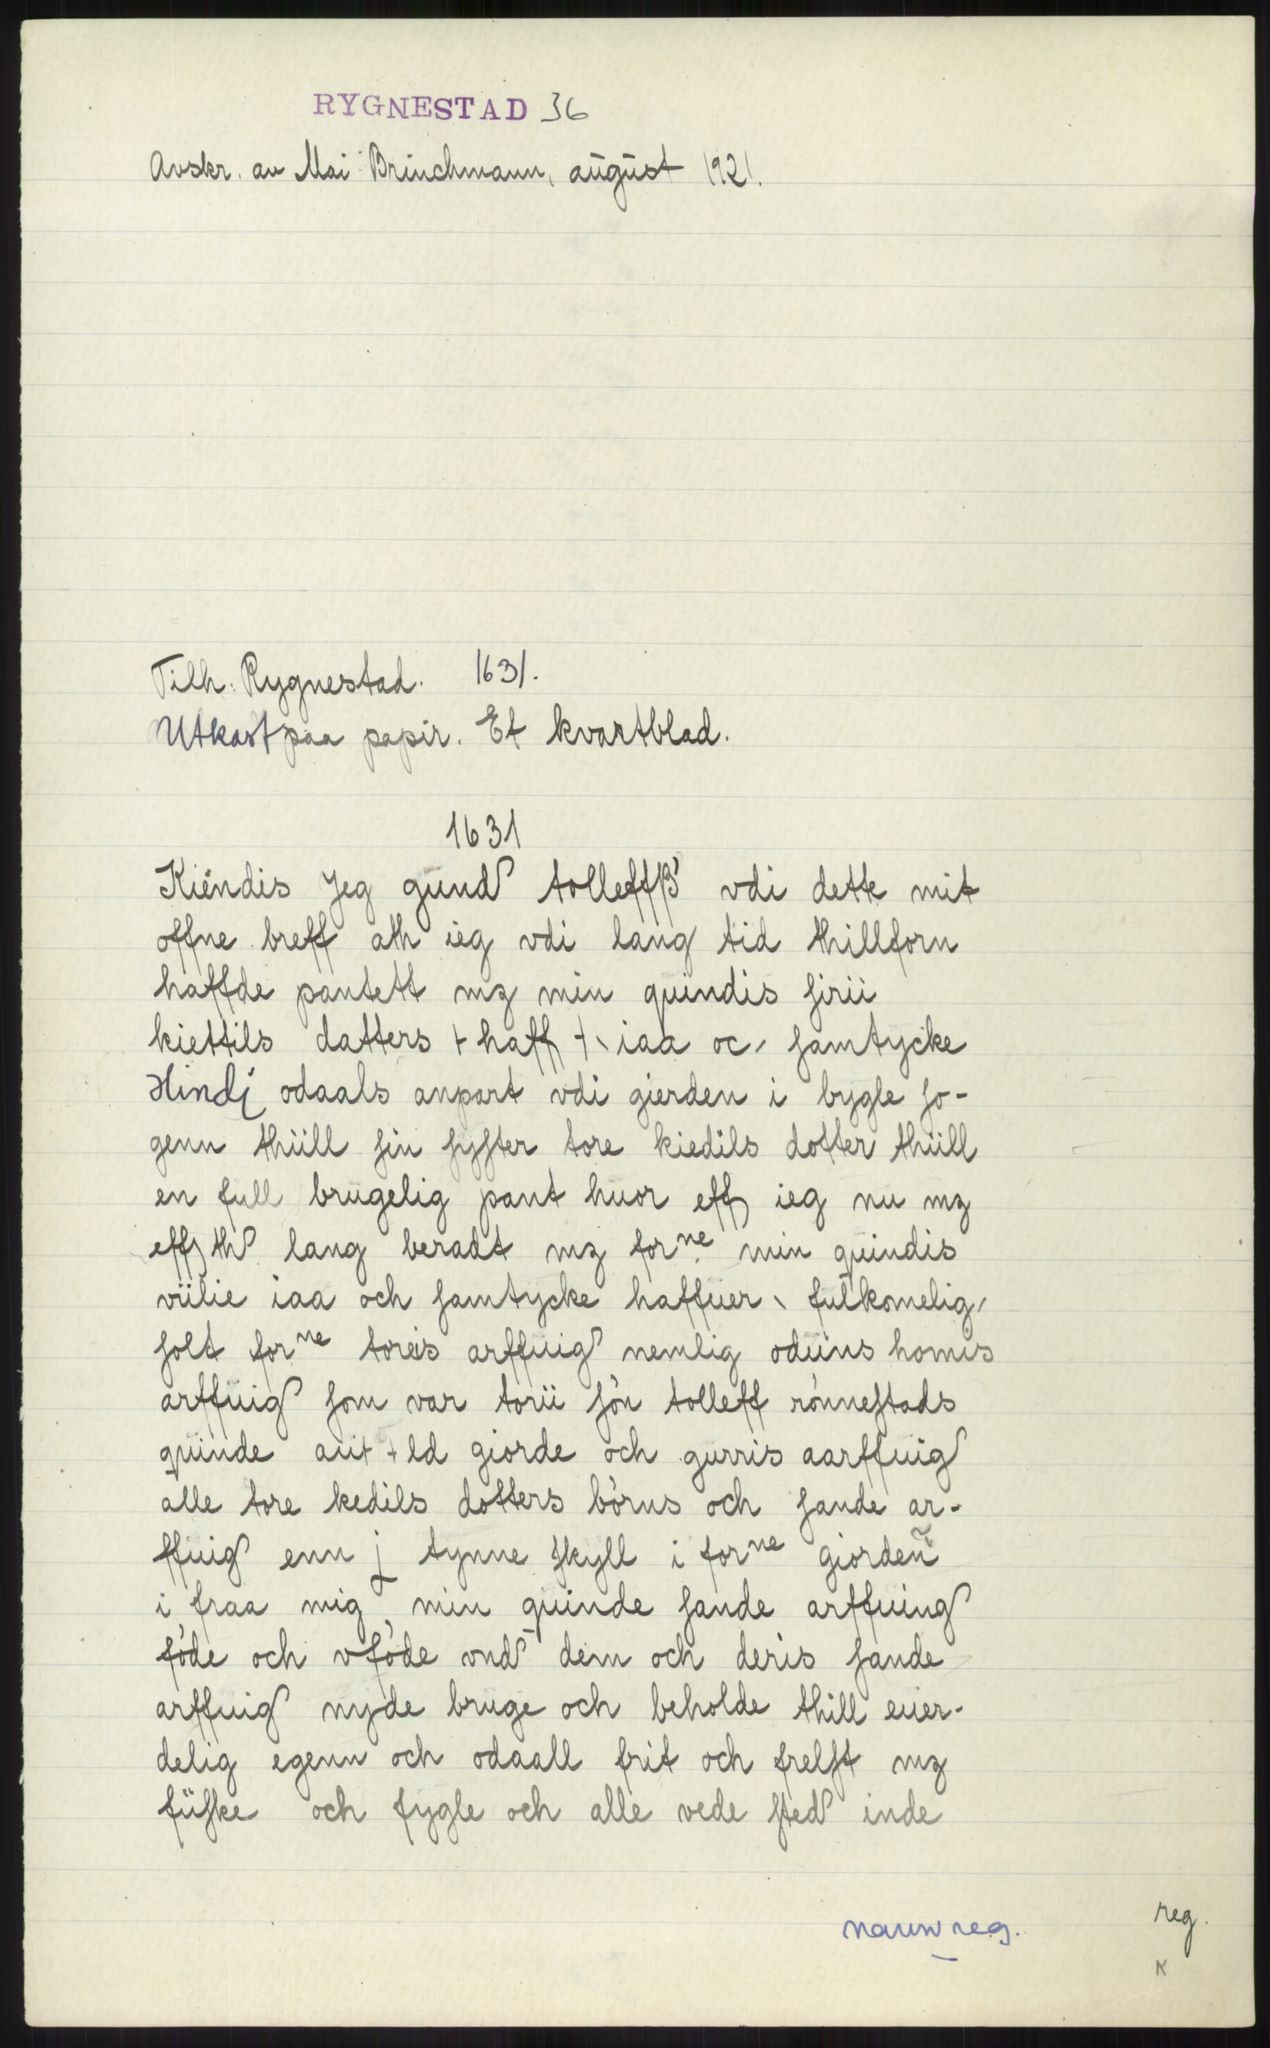 RYGNESTAD 36
Avskr. av Mai Brinchmann, august 1921.
Tilh. Rygnestad. 1631.
Utkast paa papir. Et kvartblad.
1631
Kiendis Jeg gund tolleffß vdi dette mit
offne breff ath ieg vdi lang tid thillforn
haffde pantett mz min quindis sirii
kiettils datters + haff + \ iaa oc / samtycke
Hindj odaals anpart vdi gierden i bygle so-
genn thiill sin syster tore kiedils dotter thiill
en full brugelig pant huor eff ieg nu mz
eff th lang beradt mz forne min quindis
viilie iaa och samtycke haffuer \ fulkomelig /
solt forne toreis arffuig nemlig oduins homis
arffuig som var torii sön tolleff rönnestads
quinde aut + ld giorde och gurris aarffuig
alle tore kedils dotters börns och sande ar-
ffuig enn j tynne skyll i forne giorden
i fraa mig min quinde sande arffuing
föde och vföde vnd dem och deris sande
arffuig nyde bruge och beholde thill euer-
delig egenn och odaall frit och frelst mz
fiiske och fygle och alle vede sted inde
navnreg.
reg.